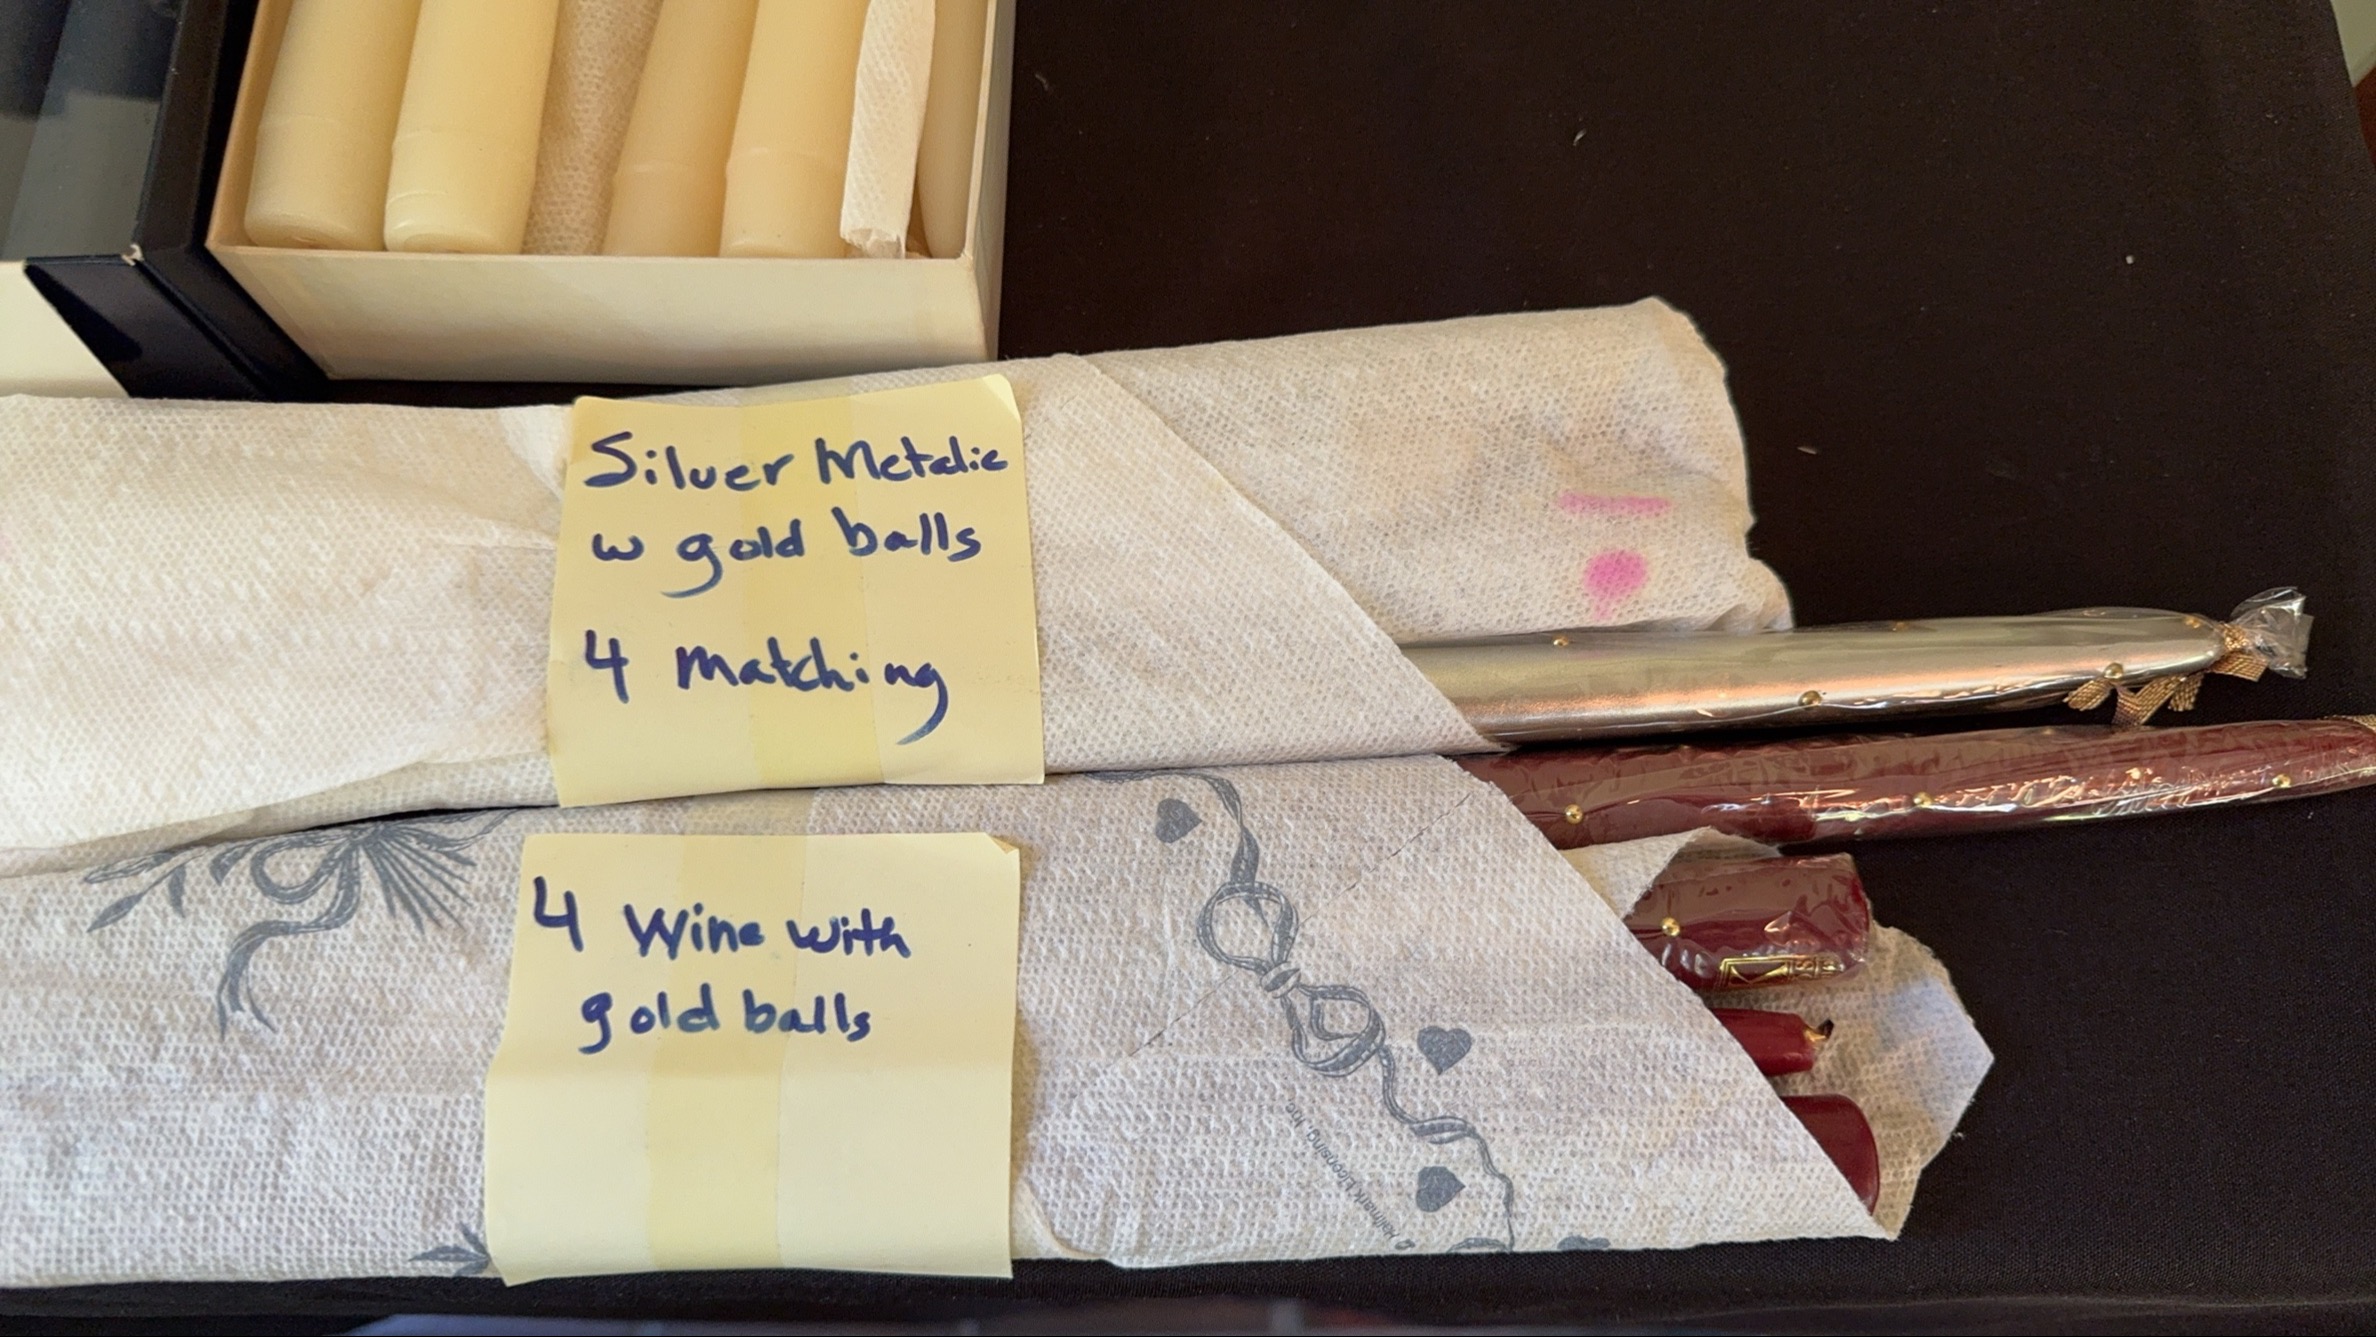 Silver Metalic
w gold balls
4 matching
4 Wine with
gold balls
© Hallmark Licensing, Inc.